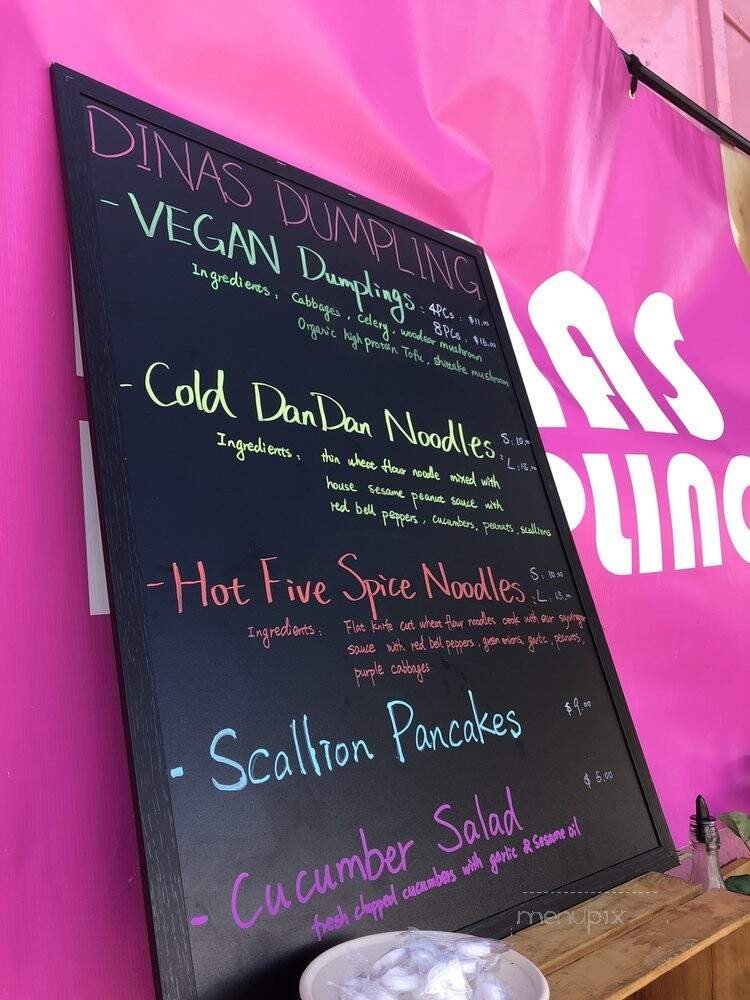 DINAS DUMPLING
- VEGAN Dumplings : 4PCs : $11.00
8PCs : $15.00
Ingredients : Cabbages, celery, woodear mushroom
Organic high protein Tofu, shittake mushroom
- Cold DanDan Noodles : S: 10.00
L: 15.00
Ingredients : thin wheat flour noodle mixed with
house sesame peanut sauce with
red bell peppers, cucumbers, peanuts, scallions
- Hot Five Spice Noodles : S: 10.00
L: 15.00
Ingredients : Flat knife cut wheat flour noodles cook with our soy vinegar
sauce with red bell peppers, green onions, garlic, peanuts,
purple cabbages
- Scallion Pancakes $9.00
- Cucumber Salad $5.00
fresh chopped cucumbers with garlic & sesame oil
NAS
PLING
menupix